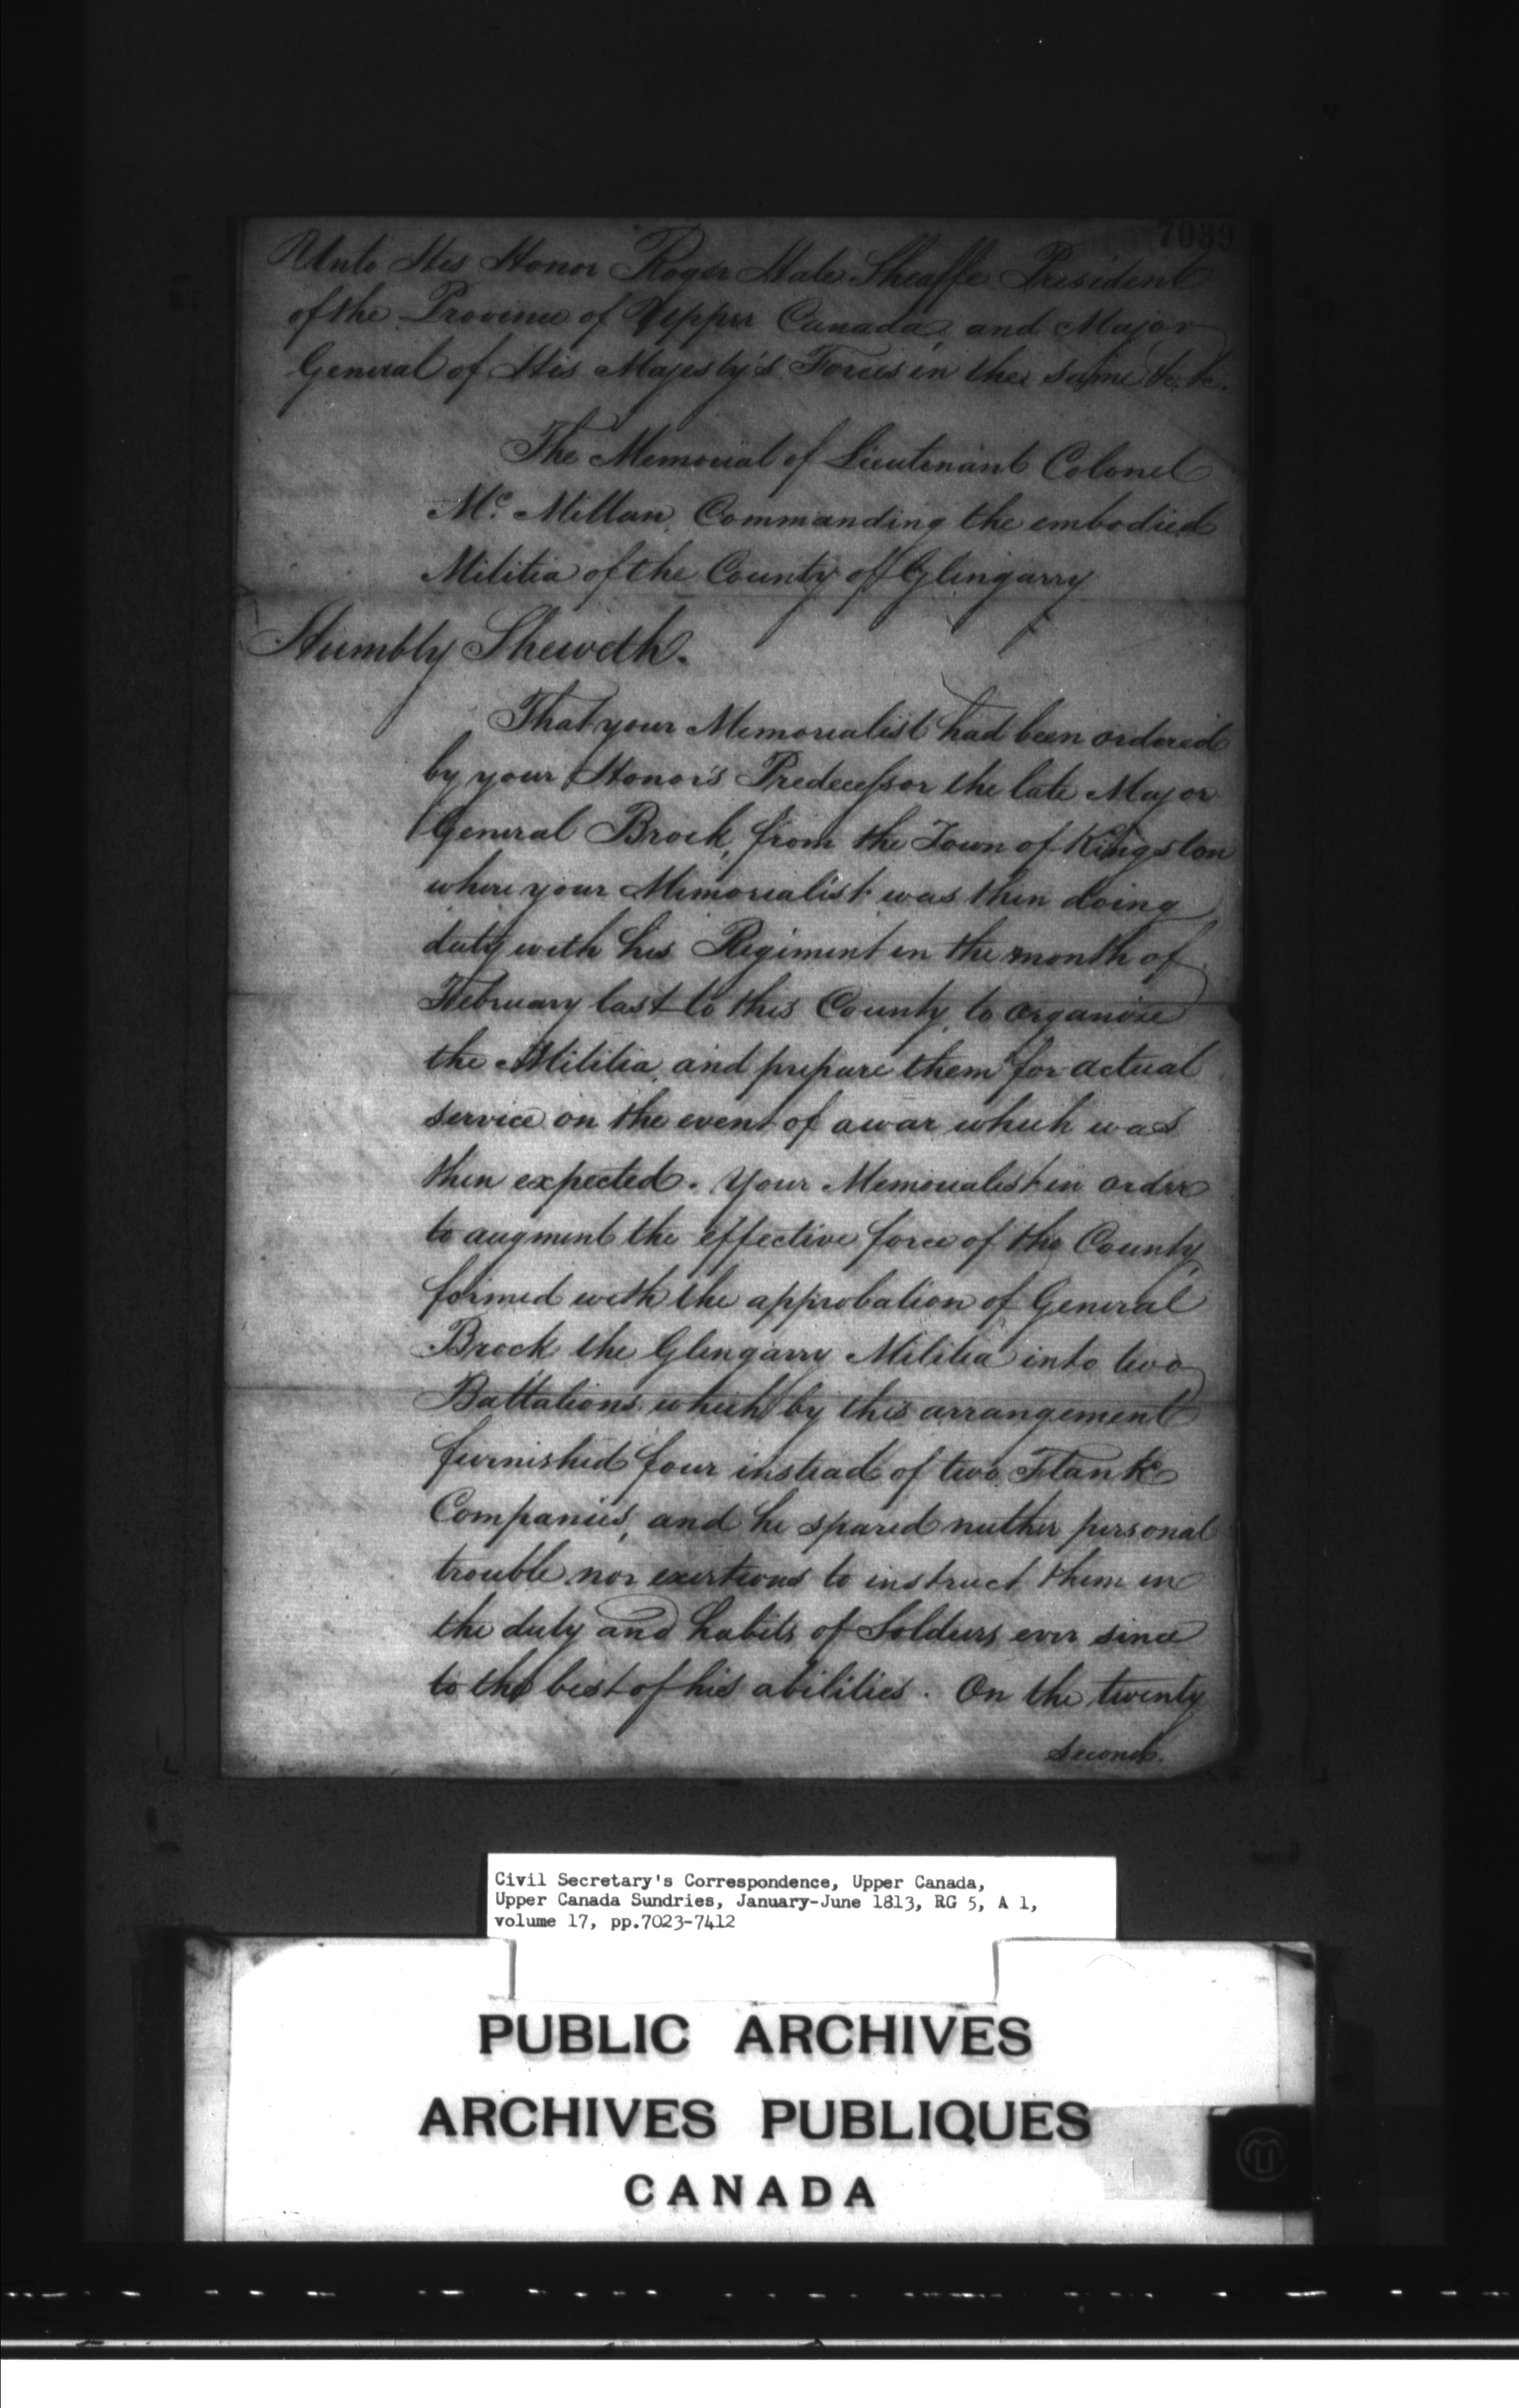 7039
Unto His Honor Roger Hale Sheaffe President
of the Province of Upper Canada, and Major
General of His Majesty's Forces in the same &c. &c.
The Memorial of Lieutenant Colonel
Mc. Millan, Commanding the embodied
Militia of the County of Glengarry
Humbly Sheweth.
That your Memorialist had been ordered
by your Honor's Predecessor the late Major
General Brock, from the Town of Kingston
where your Memorialist was then doing
duty with his Regiment in the month of
February last to this County, to organise
the Militia, and prepare them for actual
service on the event of a war which was
then expected. Your Memorialist in order
to augment the effective force of the County
formed with the approbation of General
Brock the Glengarry Militia into two
Battalions which by this arrangement
furnished four instead of two Flank
Companies, and he spared neither personal
trouble nor exertions to instruct them in
the duty and habits of Soldiers ever since
to the best of his abilities. On the twenty
second.
Civil Secretary's Correspondence, Upper Canada,
Upper Canada Sundries, January-June 1813, RG 5, A 1,
volume 17, pp.7023-7412
PUBLIC ARCHIVES
ARCHIVES PUBLIQUES
CANADA